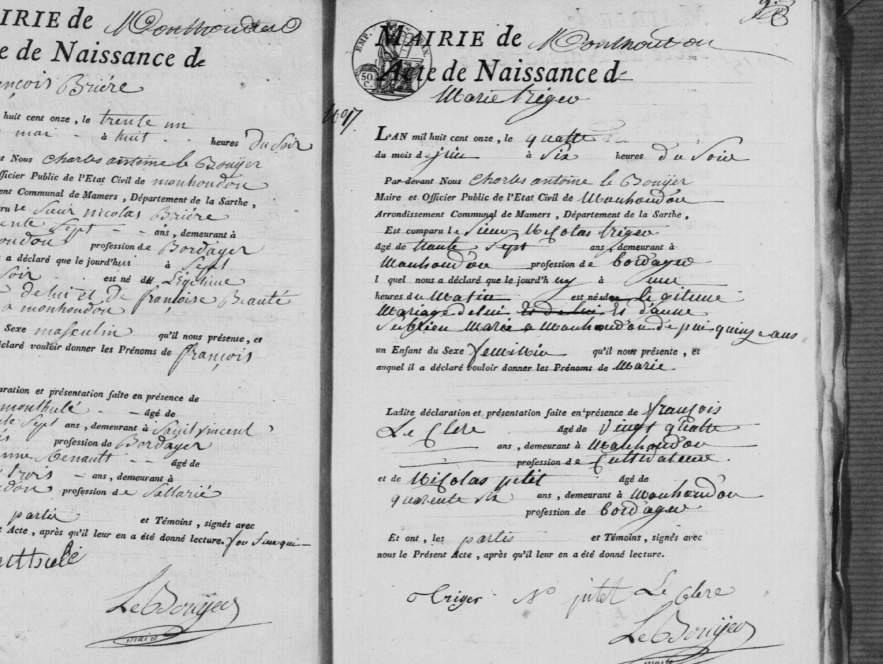 MAIRIE de Monthoudou
Acte de Naissance de
François Brière
huit cent onze, le trente un
mai à huit heures du Soir
Nous Charles antoine le Bouyer
Officier Public de l'Etat Civil de monhoudou
Communal de Mamers, Département de la Sarthe,
le Sieur nicolas Brière
trente Sept ans, demeurant à
profession de Bordager
a déclaré que le jourd'hui à Sept
Soir est né du Légitime
de lui et de françoise Beauté
a monhoudou
Sexe masculin qu'il nous présente, et
déclaré vouloir donner les Prénoms de françois
déclaration et présentation faite en présence de
monthulé âgé de
Sept ans, demeurant à Saint Vincent
profession de Bordager
Renault âgé de
trois ans, demeurant à
profession de
partie et Témoins, signés avec
Acte, après qu'il leur en a été donné lecture.
Le Bouyer
maire
EMP.
50
C.
MAIRIE de Monthoudou
Acte de Naissance de
Marie triger
No 17
L'AN mil huit cent onze, le quatre
du mois de juin à Six heures du Soir
Par-devant Nous Charles antoine le Bouyer
Maire et Officier Public de l'Etat Civil de Monhoudou
Arrondissement Communal de Mamers, Département de la Sarthe,
Est comparu le Sieur Nicolas triger
âgé de trante Sept ans, demeurant à
Monhoudou profession de bordager
l quel nous a déclaré que le jourd'huy à
heures du Matin est né du legitime
Mariage de lui Et d'anne
Marie a Monhoudou depui quinze ans
un Enfant du Sexe femi̇nin qu'il nous présente, et
auquel il a déclaré vouloir donner les Prénoms de Marie
Ladite déclaration et présentation faite en présence de françois
Le Clere âgé de vingt quatre
ans, demeurant à Monhoudou
profession de Cultivateur
et de Nicolas petit âgé de
quarente six ans, demeurant à Monhoudou
profession de bordager
Et ont, les partis et Témoins, signés avec
nous le Présent Acte, après qu'il leur en a été donné lecture.
triger N petit Le Clere
Le Bouyer
maire